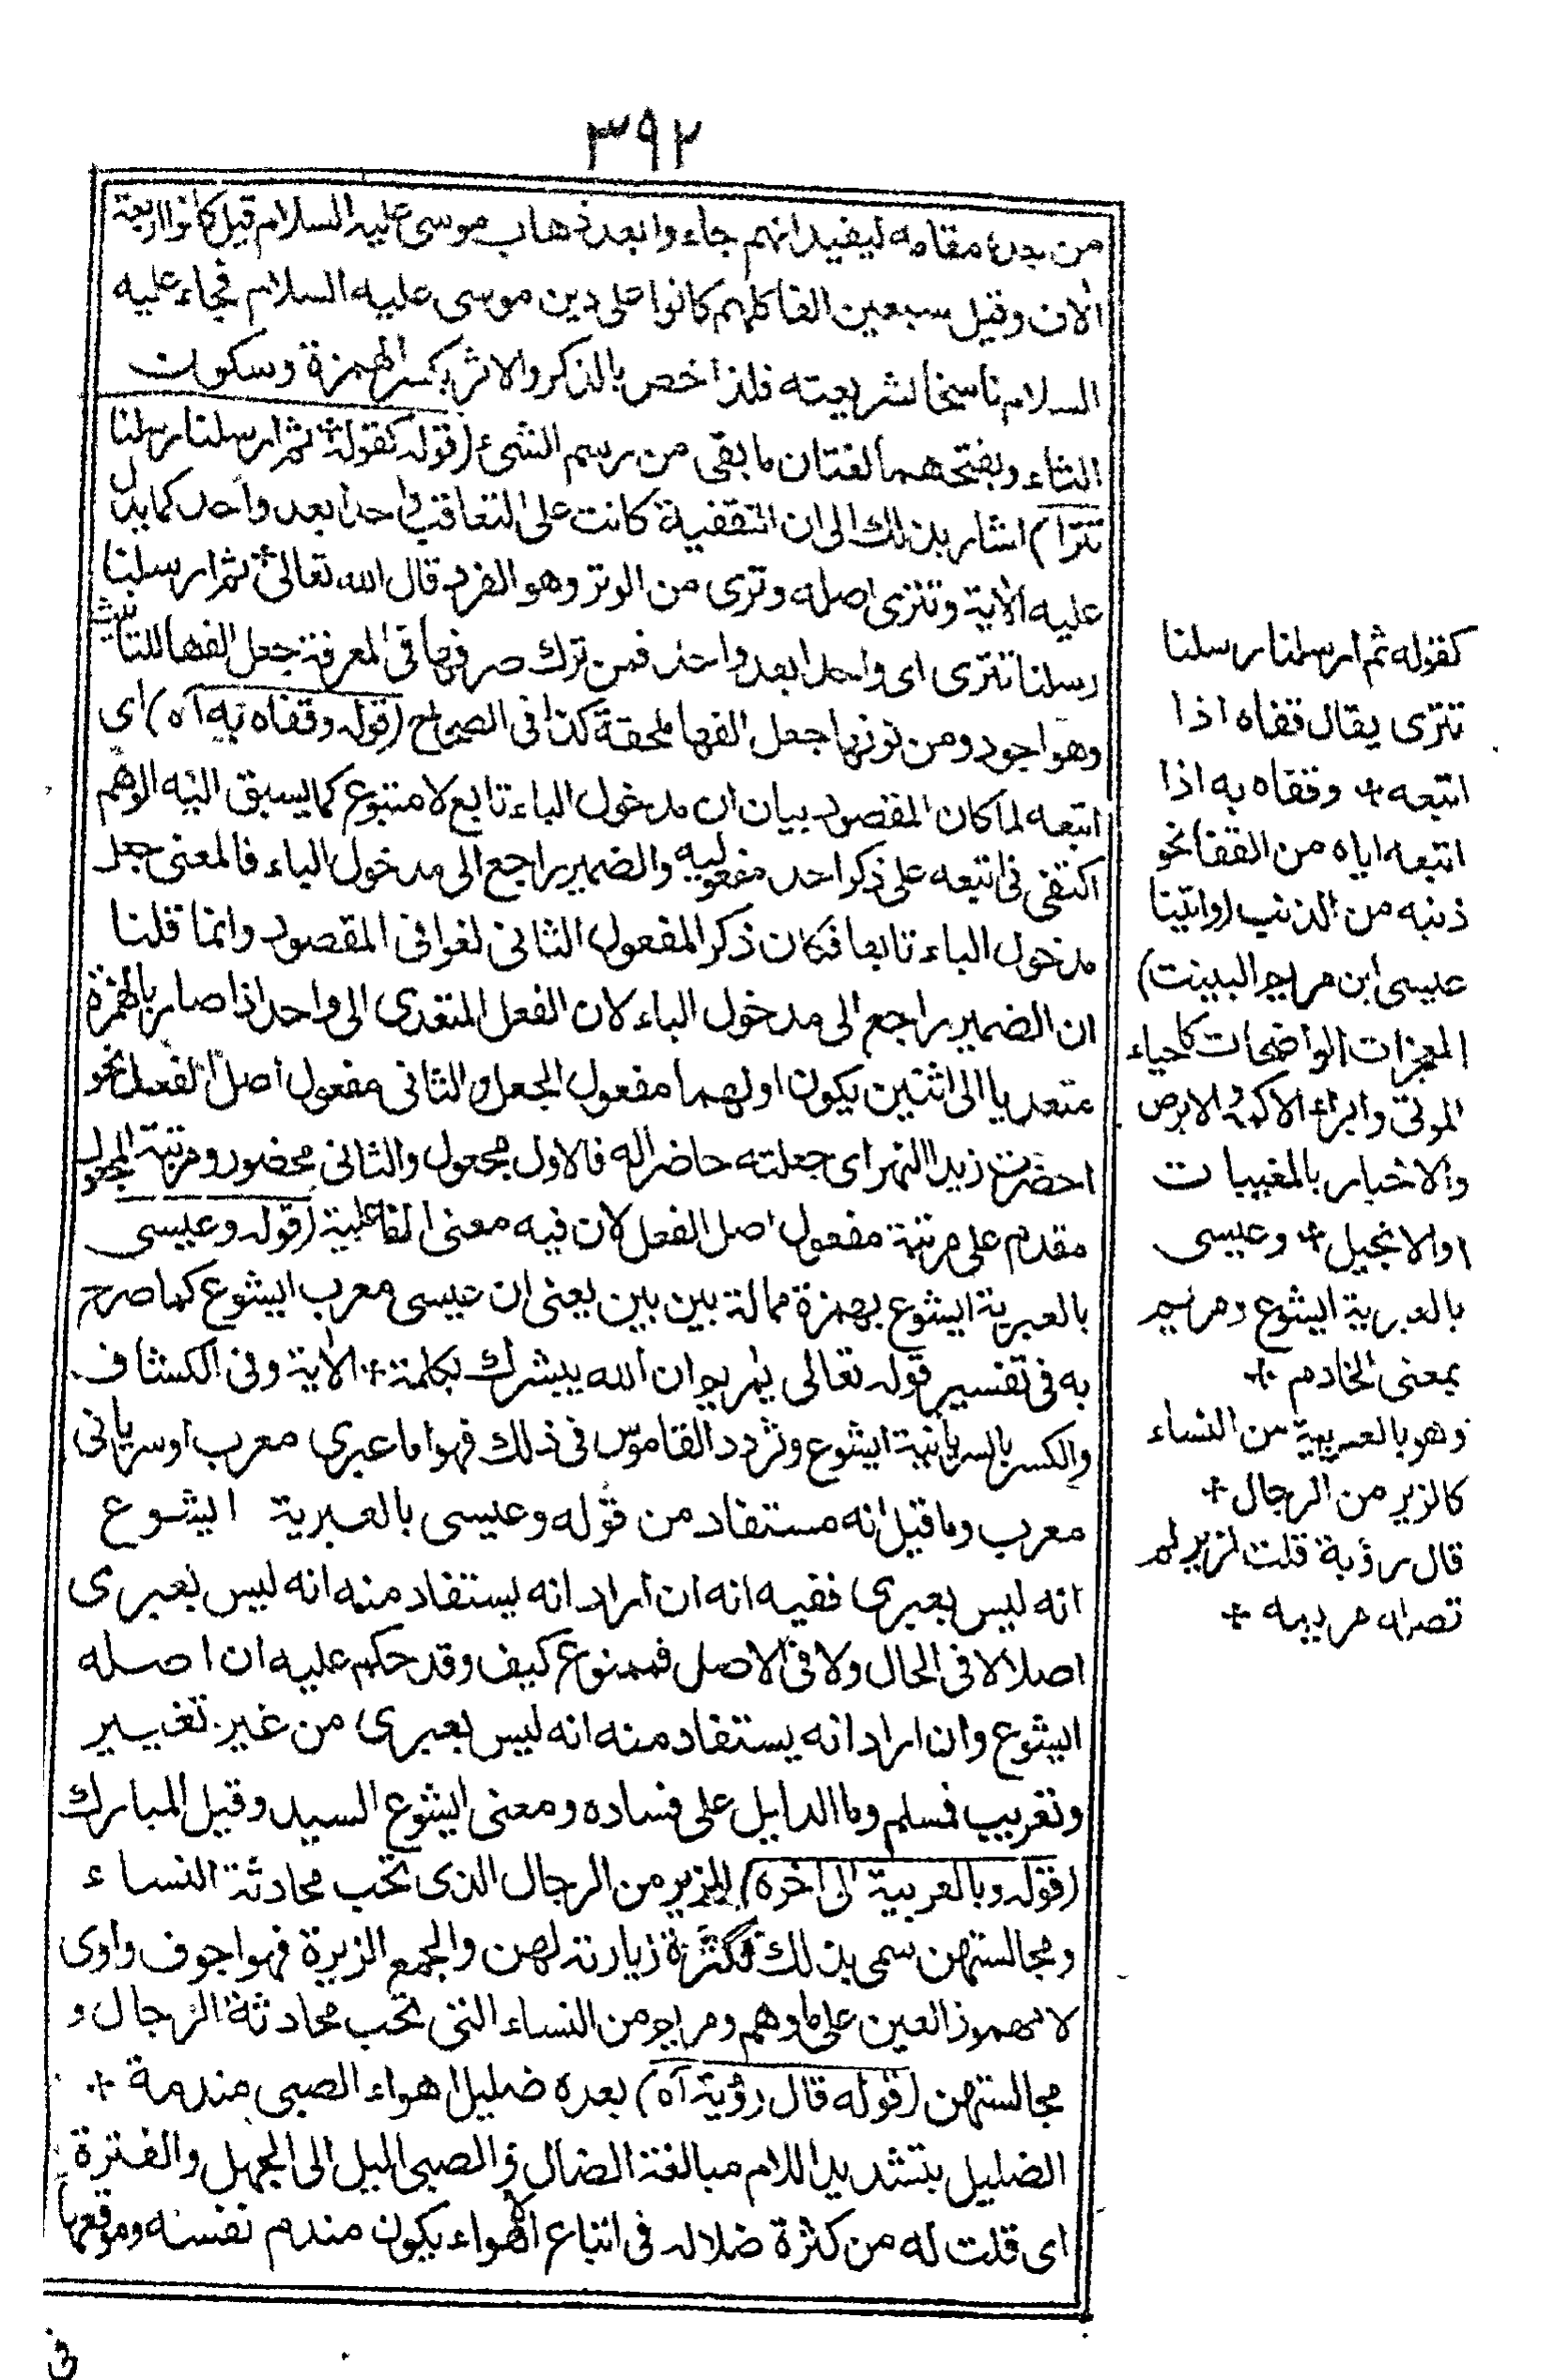 ٣٩٢
من بدل مقامه ليفيد انهم جاءوا بعد ذهاب موسى عليه السلام قيل كانوا اربعة
الاف وقيل سبعين الفا كلهم كانوا على دين موسى عليه السلام فجاء عليه
السلام ناسخا لشريعته فلذا خص بالذكر والاثر بكسر الهمزة وسكون
الثاء وبفتحهما لغتان ما بقى من رسم الشئ (قوله كقوله ثم ارسلنا رسلنا
تترا) اشار بذلك الى ان التقفية كانت على التعاقب واحدا بعد واحد كما يدل
عليه الاية وتترى اصله وترى من الوتر وهو الفرد قال الله تعالى ثم ارسلنا
رسلنا تترى اى واحدا بعد واحد فمن ترك صرفها فى المعرفة جعل الفها للتانيث
وهو اجود ومن نونها جعل الفها ملحقة كذا فى الصحاح (قوله وقفاه به آه) اى
اتبعه لما كان المقصود بيان ان مدخول الباء تابع لا متبوع كما يسبق اليه الوهم
اكتفى فى اتبعه على ذكر احد مفعوليه والضمير راجع الى مدخول الباء فالمعنى جعل
مدخول الباء تابعا فكان ذكر المفعول الثانى لغوا فى المقصود وانما قلنا
ان الضمير راجع الى مدخول الباء لان الفعل المتعدى الى واحد اذا صار بالهمزة
متعديا الى اثنين يكون اولهما مفعول الجعل والثانى مفعول اصل الفعل نحو
احضرت زيدا النهر اى جعلته حاضرا له فالاول مجعول والثانى محضور ومرتبة المجعول
مقدم على مرتبة مفعول اصل الفعل لان فيه معنى الفاعلية (قوله وعيسى
بالعبرية ايشوع بهمزة ممالة بين بين يعنى ان عيسى معرب ايشوع كما صرح
به فى تفسير قوله تعالى يمريم ان الله يبشرك بكلمة + الاية وفى الكشاف
والكسر بالسريانية ايشوع وتردد القاموس فى ذلك فهو اما عبرى معرب او سريانى
معرب وما قيل انه مستفاد من قوله وعيسى بالعبرية ايشوع
انه ليس بعبرى ففيه انه ان اراد انه يستفاد منه انه ليس بعبرى
اصلا لا فى الحال ولا فى الاصل فممنوع كيف وقد حكم عليه ان اصله
ايشوع وان اراد انه يستفاد منه انه ليس بعبرى من غير تغيير
وتعريب فمسلم وما الدليل على فساده ومعنى ايشوع السيد وقيل المبارك
(قوله وبالعربية الى اخره) الزير من الرجال الذى تحب محادثة النساء
ومجالستهن سمى بذلك لكثرة زيارته لهن والجمع الزيرة فهو اجوف واوى
لا مهموز العين على ما وهم ومريم من النساء التى تحب محادثة الرجال و
مجالستهن (قوله قال رؤية آه) بعده ضليل اهواء الصبى مندمة +
الضليل بتشديد اللام مبالغة الضال والصبى الميل الى الجهل والفترة
اى قلت له من كثرة ضلاله فى اتباع الاهواء يكون مندم نفسه وموقعها
فى
كقوله ثم ارسلنا رسلنا
تترى يقال قفاه اذا
اتبعه + وقفاه به اذا
اتبعه اياه من القفا نحو
ذنبه من الذنب (واتينا
عيسى ابن مريم البينت)
المعجزات الواضحات كاحياء
الموتى وابراء الاكمه والابرص
والاخبار بالمغيبات
اوالانجيل + وعيسى
بالعبرية ايشوع ومريم
بمعنى الخادم +
وهو بالعربية من النساء
كالزير من الرجال +
قال رؤبة قلت لزير لم
تصله مريمه +